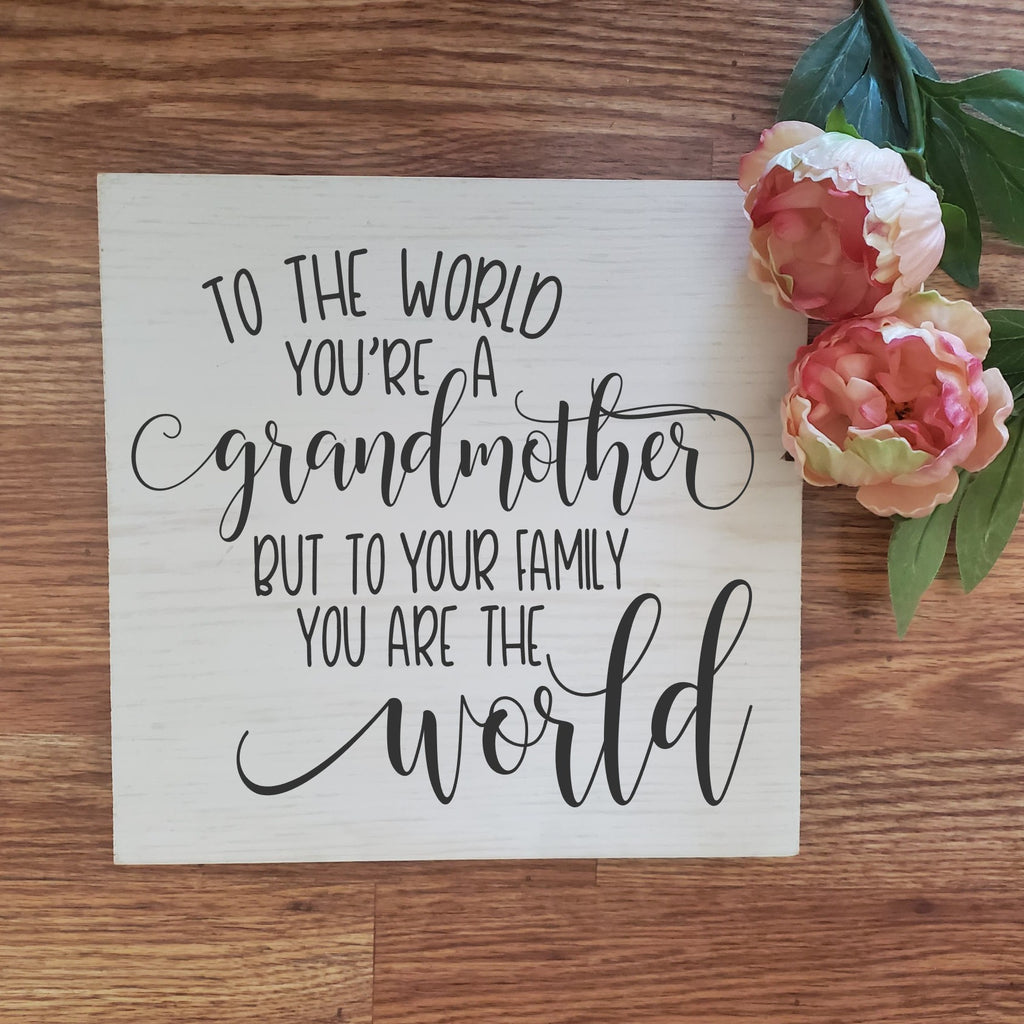 TO THE WORLD
YOU'RE A
grandmother
BUT TO YOUR FAMILY
YOU ARE THE
world